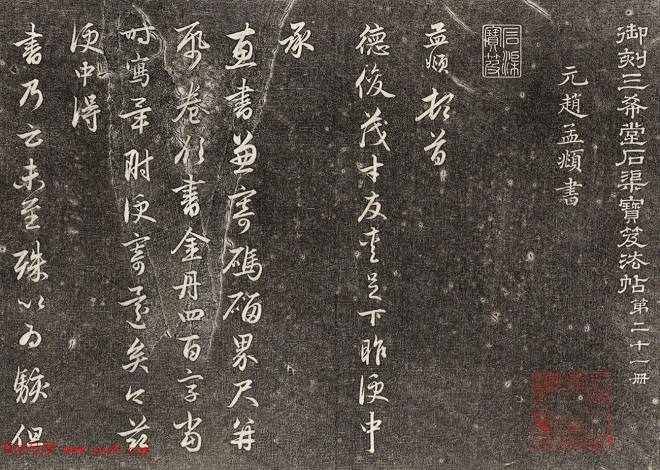 御刻三希堂石渠寶笈法帖第二十一冊
元趙孟頫書
石渠寶笈
孟頫頓首
德俊茂才友愛足下昨便中
承
惠書兼寄碼碯界尺并
卷欲書金丹四百字當
時寫畢附便寄還矣今茲
便中得
書乃云未至殊以為駭但